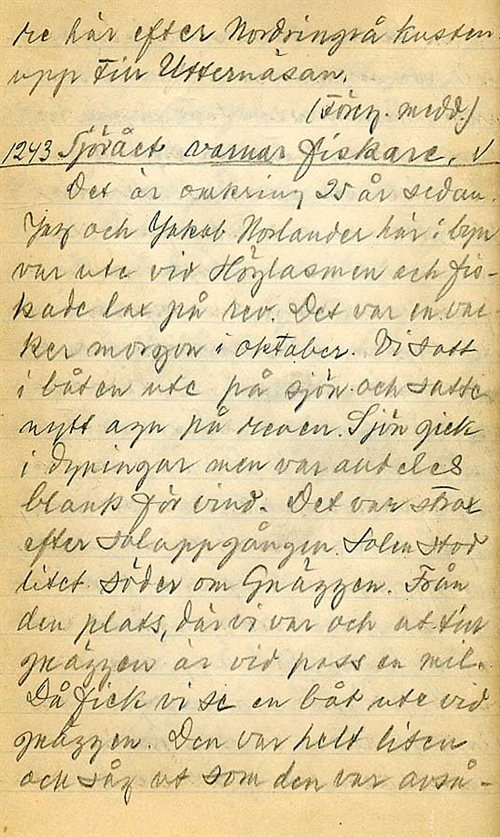 re här efter Nordingrå kusten
upp till Utternäsan.
(Förez. medd.)
1243 Sjörået varnar fiskare. V
Det är omkring 25 år sedan.
Jag och Jakob Norlander här i byn
var ute vid Höglasmen och fis-
kade lax på rev. Det var en vac-
ker morgon i oktober. Vi satt
i båten ute på sjön och satte
nytt agn på reven. Sjön gick
i dyningar men var alldeles
blank för vind. Det var strax
efter soluppgången. Solen stod
litet söder om Gnäggen. Från
den plats, där vi var och ut till
gnäggen är vid pass en mil.
Då fick vi se en båt ute vid
gnäggen. Den var helt liten
och såg ut som den var avså-